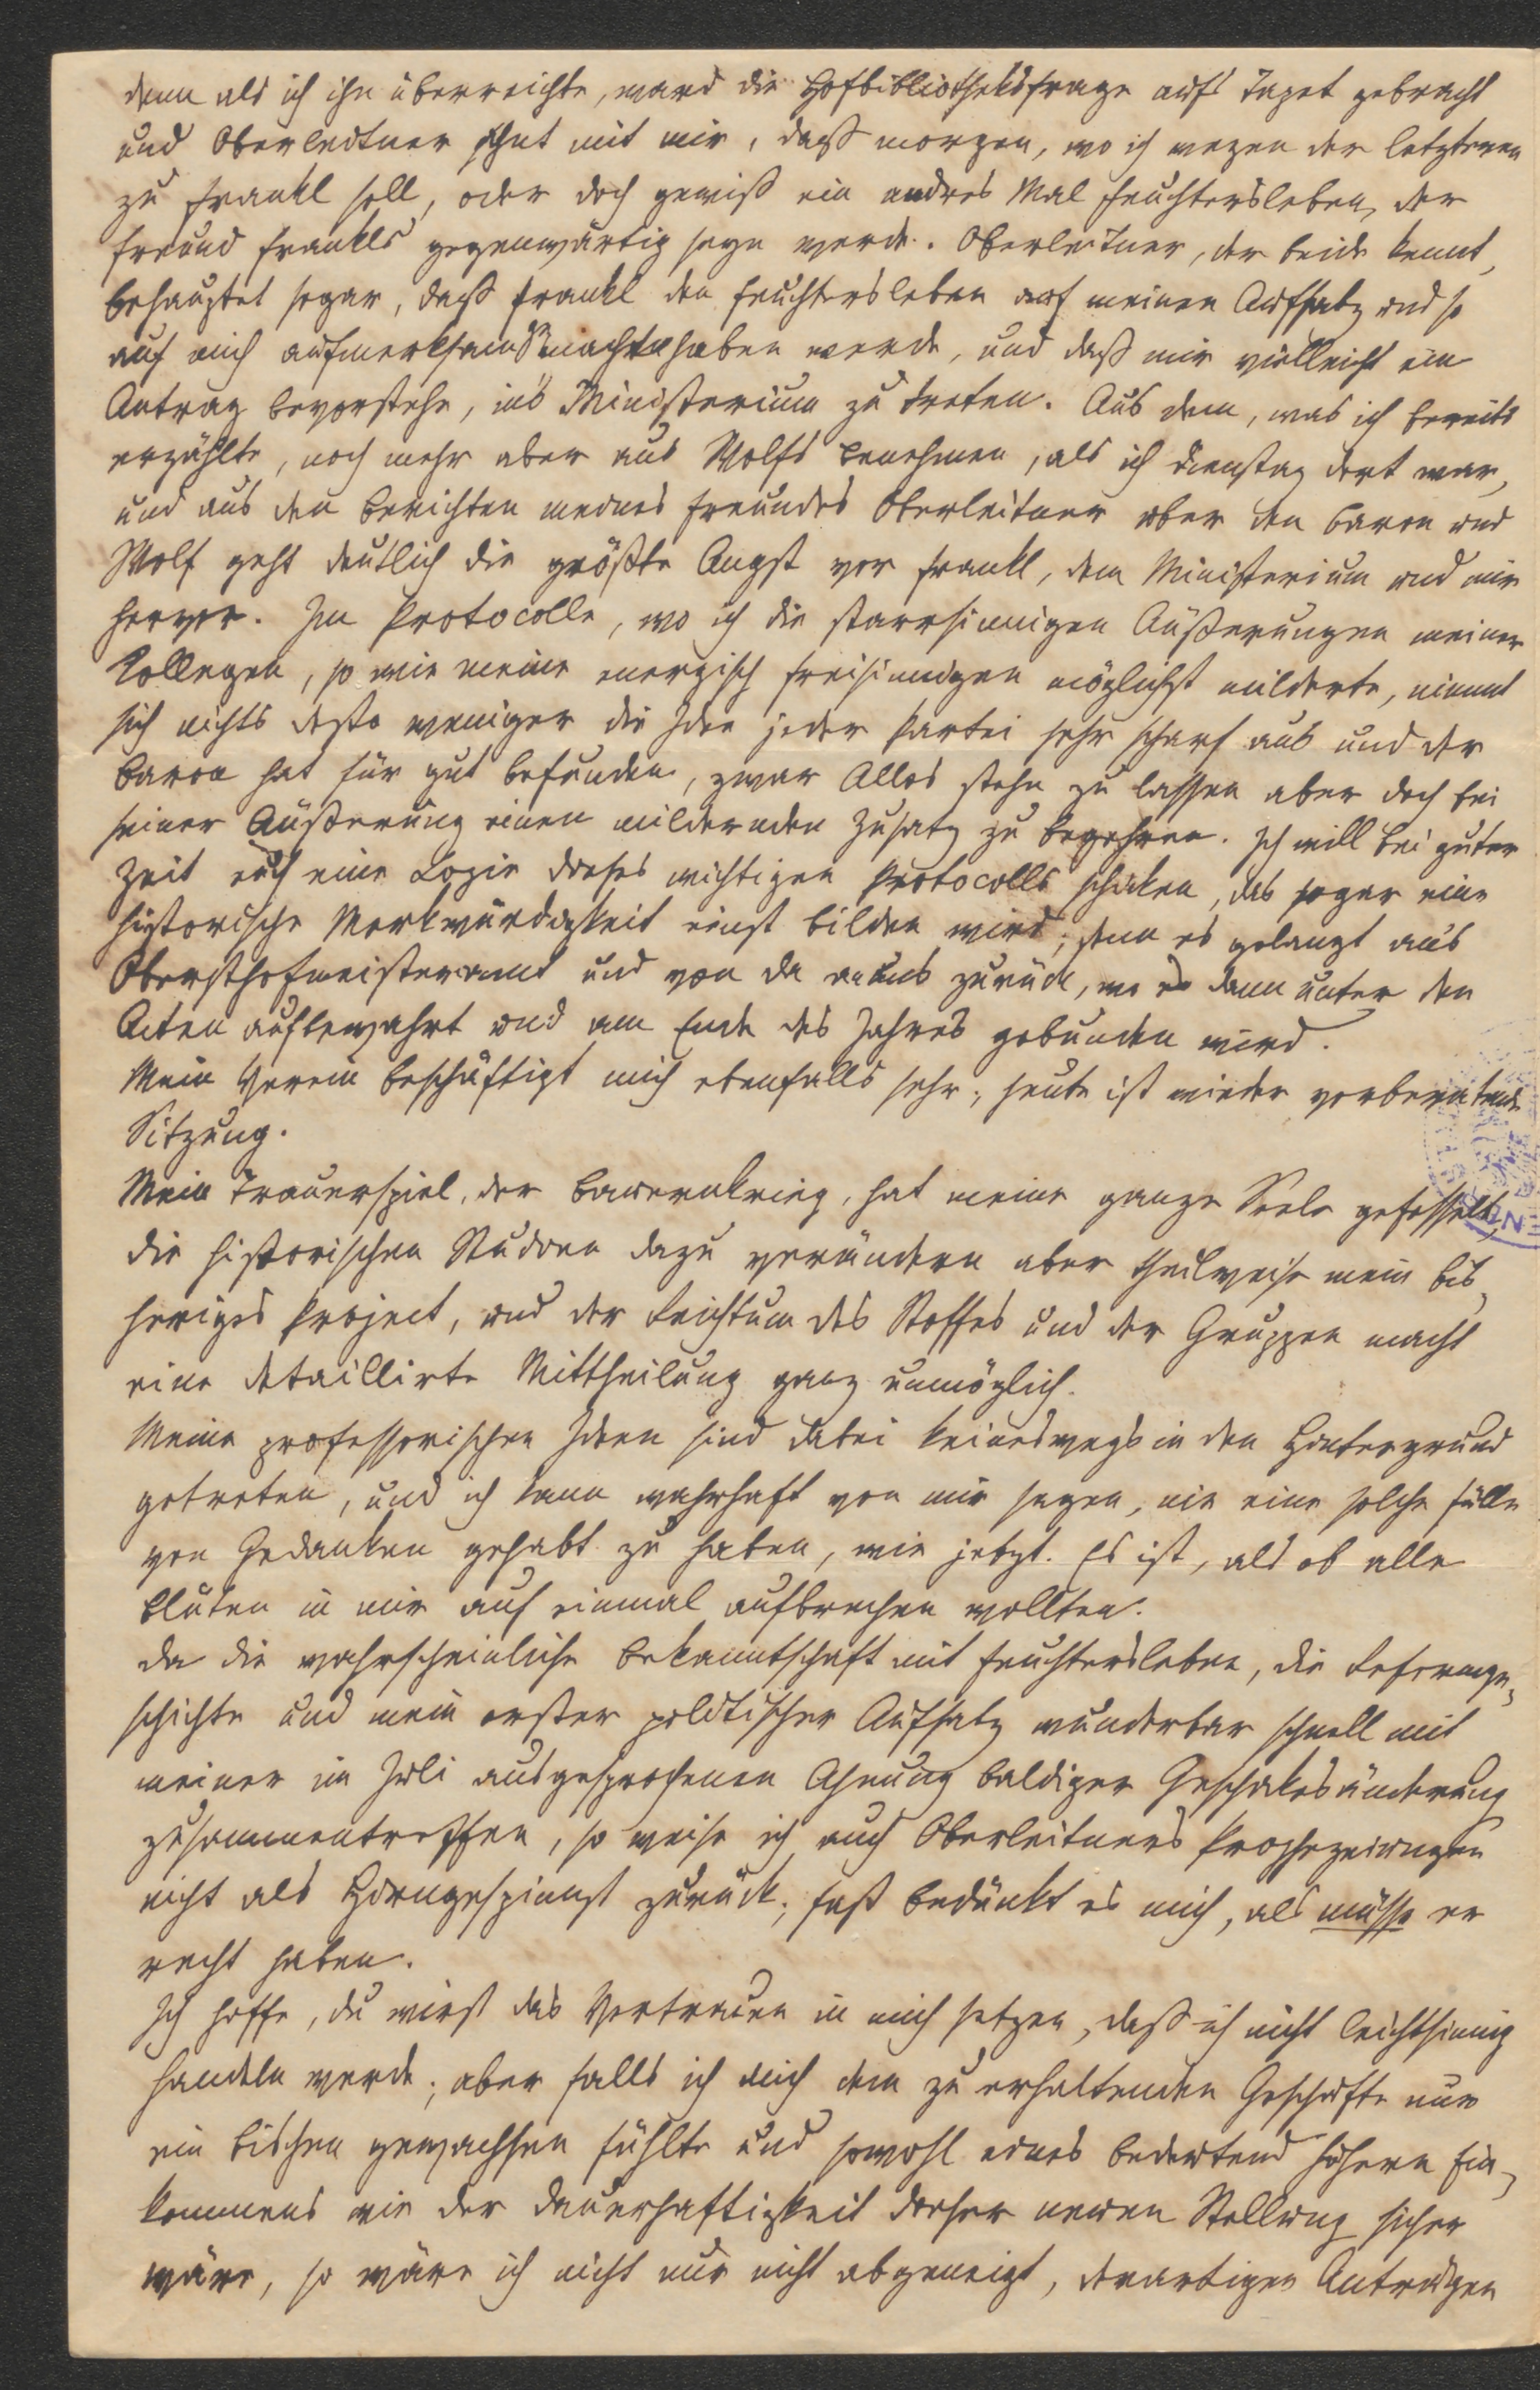 denn als ich ihn überreichte, ward die Hofbibliotheksfrage aufs Tapet gebracht
und Oberleitner ahnt mit mir, daß morgen, wo ich wegen der letzteren
zu Frankl soll, oder doch gewiß ein andres Mal Feuchtersleben, der
Freund Frankls gegenwärtig seyn werde. Oberleitner, der beide kennt,
behauptet sogar, daß Frankl den Feuchtersleben auf meinen Aufsatz und so
auf mich aufmerksam gemacht haben werde, und daß mir vielleicht ein
Antrag bevorstehe, ins Ministerium zu treten. Aus dem, was ich bereits
erzählte, noch mehr aber aus Wolfs Benehmen, als ich Dienstag dort war,
und aus den Berichten meines Freundes Oberleitner über den Baron und
Wolf geht deutlich die größte Angst vor Frankl, dem Ministerium und mir
hervor. Im Protocolle, wo ich die starrsinnigen Äußerungen meiner
Collegen, so wie meine energisch freisinnigen möglichst milderte, nimmt
sich nichts desto weniger die Idee jeder Partei sehr scharf aus und der
Baron hat für gut befunden, zwar Alles stehn zu lassen aber doch bei
seiner Äußerung einen mildernden Zusatz zu begehren. Ich will bei guter
Zeit euch eine Copie dieses wichtigen Protocolls schicken, das sogar eine
historische Merkwürdigkeit einst bilden wird; denn es gelangt ans
Obersthofmeisteramt und von da an uns zurück, wo es dann unter den
Acten aufbewahrt und am Ende des Jahres gebunden wird.
Mein Verein beschäftigt mich ebenfalls sehr; heute ist wieder vorberatende
Sitzung.
Mein Trauerspiel, der Bauernkrieg, hat meine ganze Seele gefesselt,
die historischen Studien dazu verändern aber theilweise mein bis-
heriges Project, und der Reichtum des Stoffes und der Gruppen macht
eine detaillirte Mittheilung ganz unmöglich.
Meine professorischen Ideen sind dabei keineswegs in den Hintergrund
getreten, und ich kann wahrhaft von mir sagen, nie eine solche Fülle
von Gedanken gehabt zu haben, wie jetzt. Es ist, als ob alle
Blüten in mir auf einmal aufbrechen wollten.
Da die wahrscheinliche Bekanntschaft mit Feuchtersleben, die Reformge-
schichte und mein erster politischer Aufsatz wunderbar schnell mit
meiner im Juli ausgesprochenen Ahnung baldiger Geschickesänderung
zusammentreffen, so weise ich auch Oberleitners Prophezeiungen
nicht als Hirngespinnst zurück; fast bedünkt es mich, als müsse er
recht haben.
Ich hoffe, du wirst das Vertrauen in mich setzen, daß ich nicht leichtsinnig
handeln werde; aber falls ich mich dem zu erhaltenden Geschäfte nur
ein bischen gewachsen fühlte und sowohl eines bedeutend höhern Ein-
kommens wie der Dauerhaftigkeit dieser neuen Stellung sicher
wäre, so wäre ich nicht nur nicht abgeneigt, derartigen Anträgen